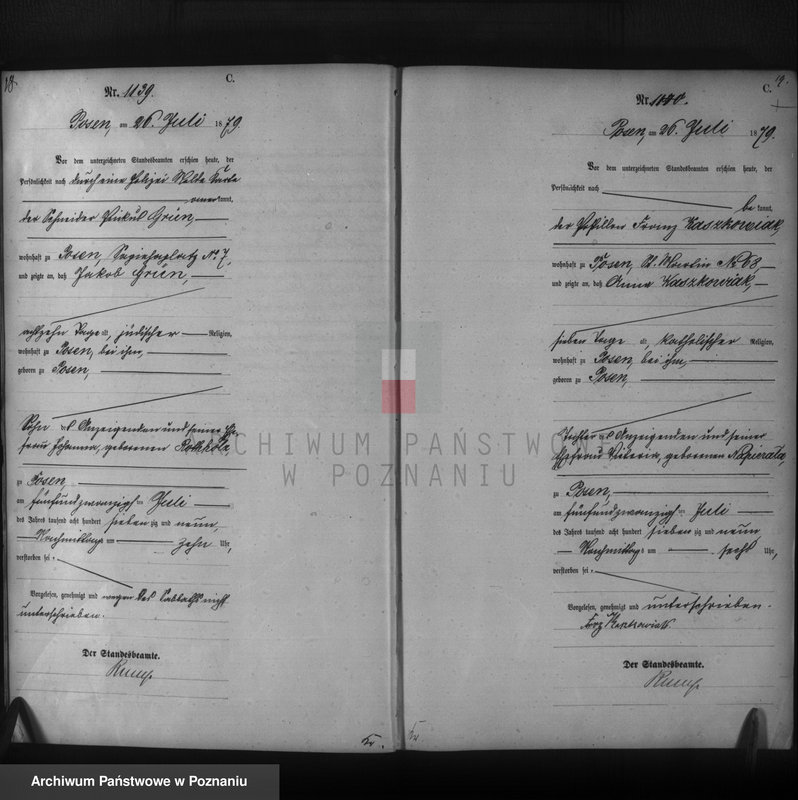 18.
C.
Nr. 1139.
Posen, am 26. Juli 1879.
Vor dem unterzeichneten Standesbeamten erschien heute, der
Persönlichkeit nach durch eine Polizei Melde Karte
anerkannt,
der Schneider Grün,
wohnhaft zu Posen, Sapiehaplatz No 7,
und zeigte an, daß Jakob Grün,
achtzehn Tage alt, jüdischer Religion,
wohnhaft zu Posen, bei ihm,
geboren zu Posen,
Sohn des Anzeigenden und seiner Ehe-
frau Johanna, geborenen Rothholz,
zu Posen,
am fünfundzwanzigsten Juli
des Jahres tausend acht hundert siebenzig und neun,
Nachmittags um zehn Uhr,
verstorben sei.
Vorgelesen, genehmigt und wegen des Sabbaths nicht
unterschrieben.
Der Standesbeamte.
19.
C.
Nr. 1140.
Posen, am 26. Juli 1879.
Vor dem unterzeichneten Standesbeamten erschien heute, der
Persönlichkeit nach
bekannt,
der Franz Kaszkowiak,
wohnhaft zu Posen, St. Martin No 68,
und zeigte an, daß Anna Kaszkowiak,
sieben Tage alt, katholischer Religion,
wohnhaft zu Posen, bei ihm,
geboren zu Posen,
Tochter des Anzeigenden und seiner
Ehefrau Viktoria, geborenen
zu Posen,
am fünfundzwanzigsten Juli
des Jahres tausend acht hundert siebenzig und neun
Nachmittags um sechs Uhr,
verstorben sei.
Vorgelesen, genehmigt und unterschrieben.
Der Standesbeamte.
ARCHIWUM PAŃSTWOWE
W POZNANIU
Archiwum Państwowe w Poznaniu